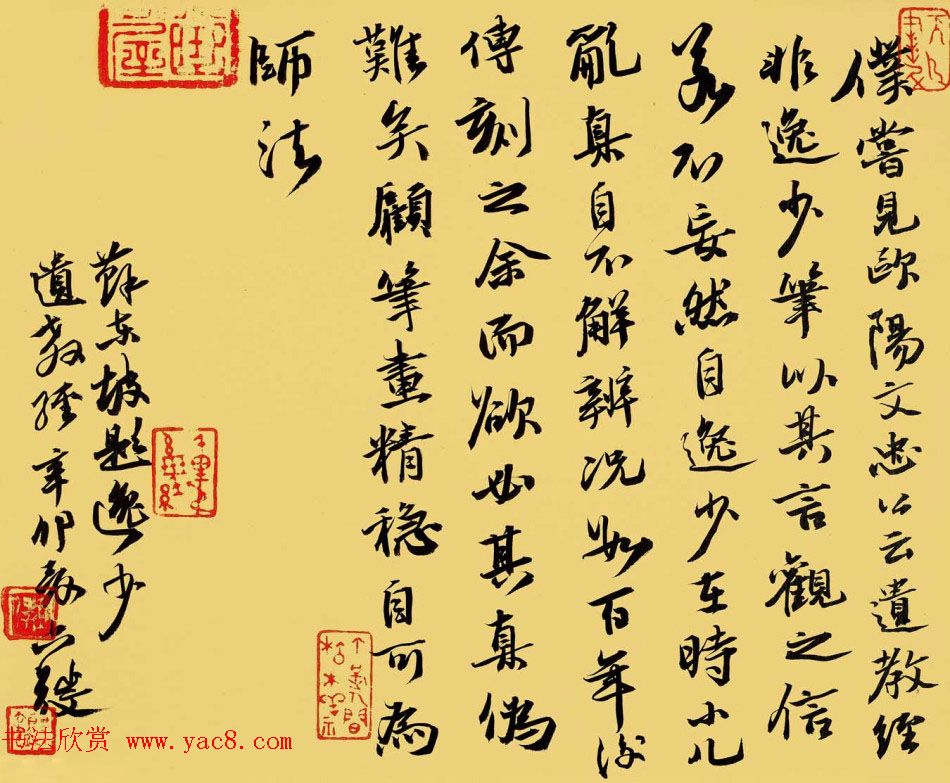 僕嘗見歐陽文忠公云遺教經
非逸少筆以其言觀之信
若不妄然自逸少在時小兒
亂真自不解辨況如百年後
傳刻之余而欲必其真偽
難矣顧筆畫精穩自可為
師法
蘇東坡題逸少
遺教經辛卯
书法欣赏 www.yac8.com